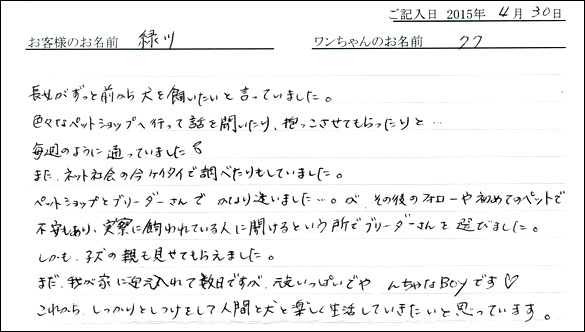 ご記入日 2015年 4月 30日
お客様のお名前 緑川 ワンちゃんのお名前 クク
長女がずっと前から犬を飼いたいと言っていました。
色々なペットショップへ行って話を聞いたり、抱っこさせてもらったりと…
毎週のように通っていました
また、ネット社会の今ケイタイで調べたりもしていました。
ペットショップとブリーダーさんでかなり迷いました…。が、その後のフォローや初めてのペットで
不安もあり、実際に飼われている人に聞けるという所でブリーダーさんを選びました。
しかも、子犬の親も見せてもらえました。
まだ、我が家に迎え入れて数日ですが、元気いっぱいでや んちゃなBoyです♡
これから、しっかりとしつけをして人間と犬と楽しく生活していきたいと思っています。